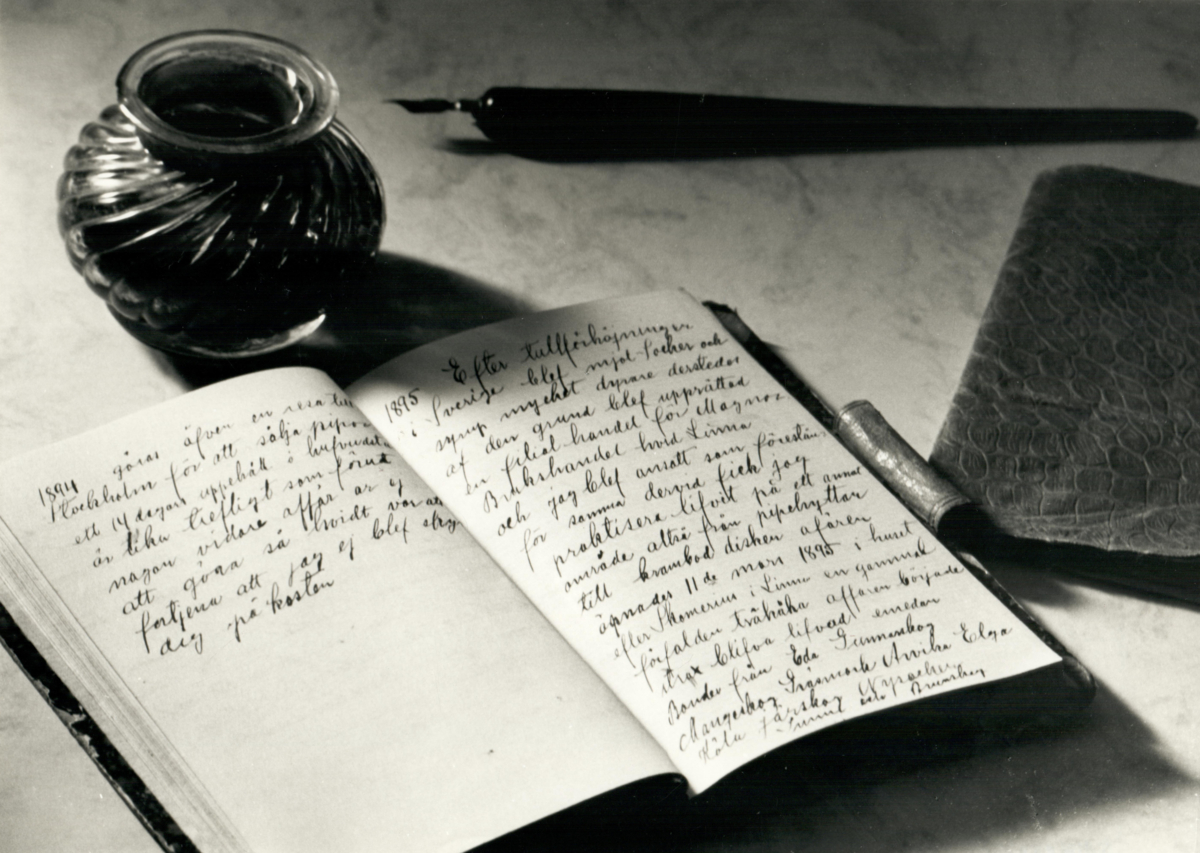 1894
göras äfven en resa till
Stockholm för att sälja pipor
ett 14 dagars uppehåll i hufvudst
är lika trefligt som förut
någon vidare affär är ej
att göra så hvidt var att
förtjena att jag ej blef skyl
dig på kosten
1895
Efter tullförhöjningen
i Sverige blef mjöl Socker och
syrup mycket dyrare derstedes
af den grund blef upprättad
en filial handel för Magnor
Brukshandel hvid Linna
och jag blef ansatt som förestån
för samma dervid fick jag
praktisera lifvit på ett annat
område altså från pipehyttan
till krambod disken afären
åpnades 11 de mars 1895 i huset
efter Skomerius i Linna en gammal
förfalden trähåka affären började
strax blifva lifvad emedan
Bönder från Eda Gunnarskog
Mangskog Gräsmark Arvika Elga
Köla Järnskog Nysocken
Sunne och Brunskog